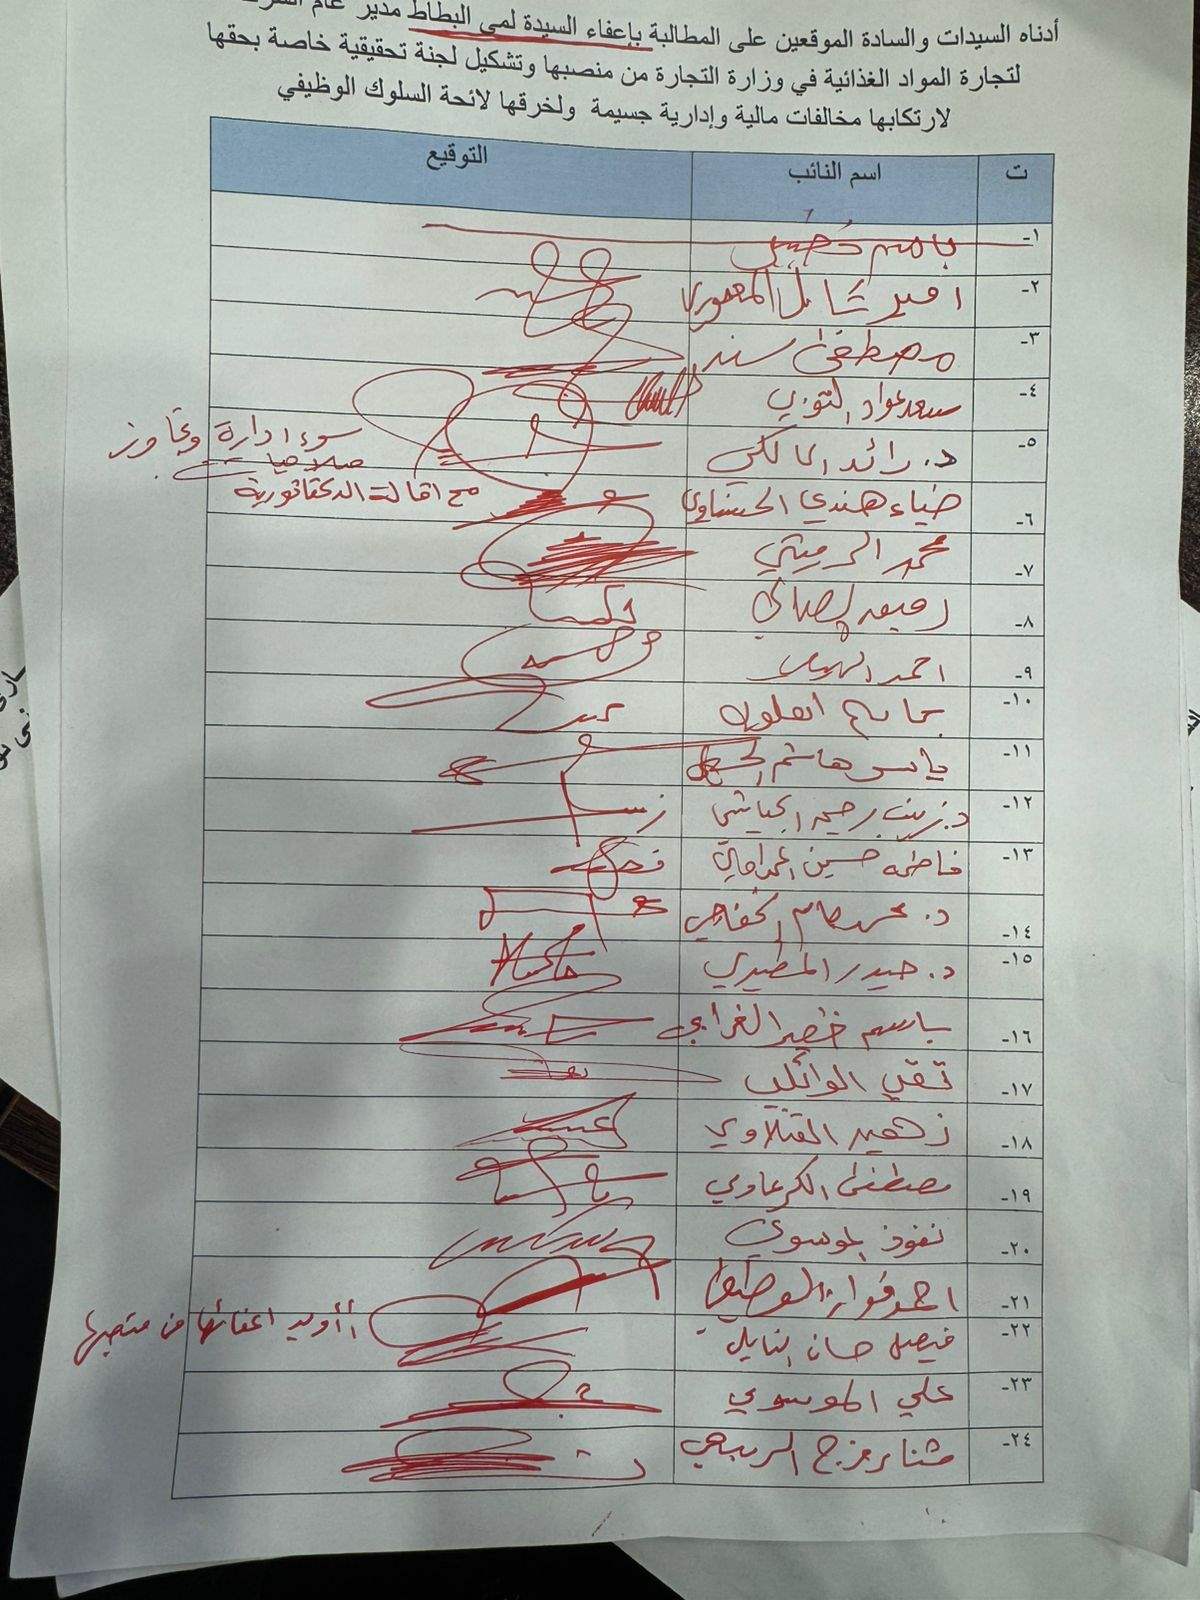 أدناه السيدات والسادة الموقعين على المطالبة بإعفاء السيدة لمى البطاط مدير عام
لتجارة المواد الغذائية في وزارة التجارة من منصبها وتشكيل لجنة تحقيقية خاصة بحقها
لارتكابها مخالفات مالية وإدارية جسيمة ولخرقها لائحة السلوك الوظيفي
ت اسم النائب التوقيع
١- باسم
٢- امير شامل المعموري
٣- مصطفى سند
٤- سعد عواد التوبي
٥- د. رائد المالكي سوء ادارة وتجاوز صلاحيات
٦- ضياء هندي الحسناوي مع اقالة الدكتاتورية
٧- محمد الرميثي
٨- رفيق الصالحي
٩- احمد
١٠-
١١- ياسر هاشم
١٢- د. زينب رحيم الجياشي
١٣- فاطمة حسين
١٤- د. محمد الخفاجي
١٥- د. حيدر المطيري
١٦- باسم خضير الغرابي
١٧- تقي الوائلي
١٨- زهير الفتلاوي
١٩- مصطفى الكرعاوي
٢٠- نفوذ الموسوي
٢١- احمد فواز الوطيفي
٢٢- فيصل حسان النايلي أأويد اعفائها من منصبها
٢٣- علي الموسوي
٢٤-